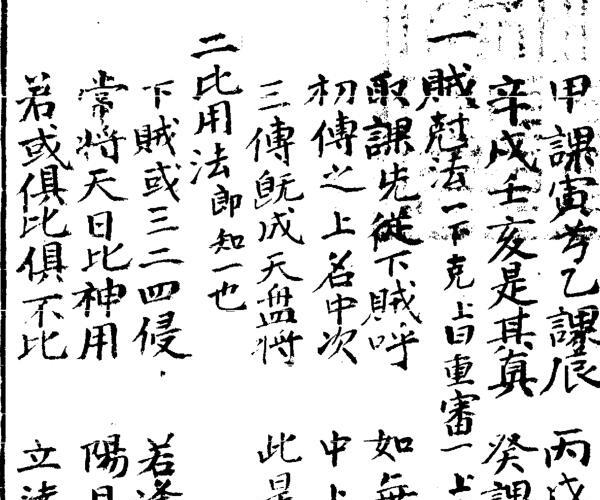 甲課寅兮乙課辰 丙戊
辛戌壬亥是其真 癸課
一賊尅法一下克上曰重審一上
取課先從下賊呼 如無
初傳之上名中次 中上
三傳既成天盤將 此是
二比用法即知一也
下賊或三二四侵 若逢
常將天日比神用 陽日
若或俱比俱不比 立